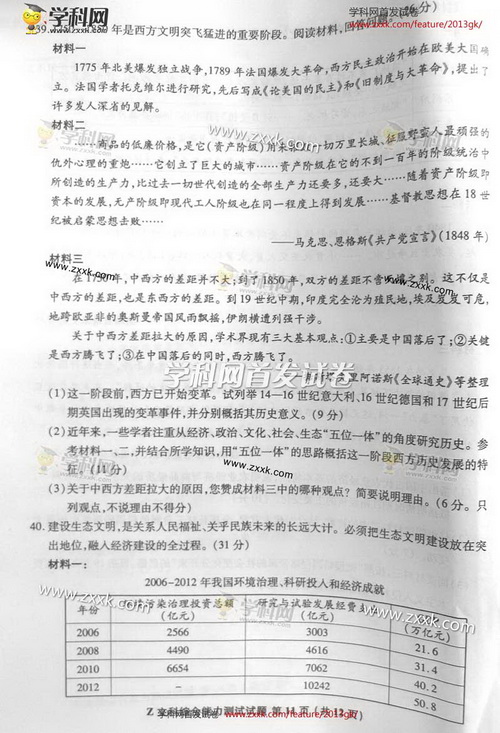 学科网首发试卷
www.zxxk.com/feature/2013gk/
学科网
www.zxxk.com
年是西方文明突飞猛进的重要阶段。阅读材料,回答问题。
材料一
1775年北美爆发独立战争,1789年法国爆发大革命,西方民主政治开始在欧美大国确
立。法国学者托克维尔进行研究,先后写成《论美国的民主》和《旧制度与大革命》,提出了
许多发人深省的见解。
材料二
……商品的低廉价格,是它(资产阶级)用来摧毁一切万里长城、征服野蛮人最顽强的
仇外心理的重炮……它创立了巨大的城市……资产阶级在它的不到一百年的阶级统治中
所创造的生产力,比过去一切世代创造的全部生产力还要多,还要大……随着资产阶级即
资本的发展,无产阶级即现代工人阶级也在同一程度上得到发展……基督教思想在18世
纪被启蒙思想击败……
——马克思、恩格斯《共产党宣言》(1848年)
材料三
在1750年,中西方的差距并不大;到了1850年,双方的差距不啻天壤之别。这不仅是
中西方的差距,也是东西方的差距。到19世纪中期,印度完全沦为殖民地,埃及岌岌可危,
地跨欧亚非的奥斯曼帝国风雨飘摇,伊朗横遭列强干涉。
关于中西方差距拉大的原因,学术界现有三大基本观点:①主要是中国落后了;②关键
是西方腾飞了;③在中国落后的同时,西方腾飞了。
里阿诺斯《全球通史》等整理
学科网首发试卷
(1)这一阶段前,西方已开始变革。试列举14—16世纪意大利、16世纪德国和17世纪后
期英国出现的变革事件,并分别概括其历史意义。(9分)
(2)近年来,一些学者注重从经济、政治、文化、社会、生态“五位一体”的角度研究历史。参
考材料一、二,并结合所学知识,用“五位一体”的思路概括这一阶段西方历史发展的特
征。(11分)
(3)关于中西方差距拉大的原因,您赞成材料三中的哪种观点?简要说明理由。(6分。只
列观点,不说理由不得分)
40. 建设生态文明,是关系人民福祉、关乎民族未来的长远大计。必须把生态文明建设放在突
出地位,融入经济建设的全过程。(31分)
材料一:
2006-2012年我国环境治理、科研投入和经济成就
年份 环境污染治理投资总额(亿元) 研究与试验发展经费支出(亿元) (万亿元)
2006 2566 3003 21.6
2008 4490 4616 31.4
2010 6654 7062 40.2
2012 – 10242 50.8
Z 文科综合能力测试试题 第11页(共12页)
学科网首发试卷 www.zxxk.com/feature/2013gk/